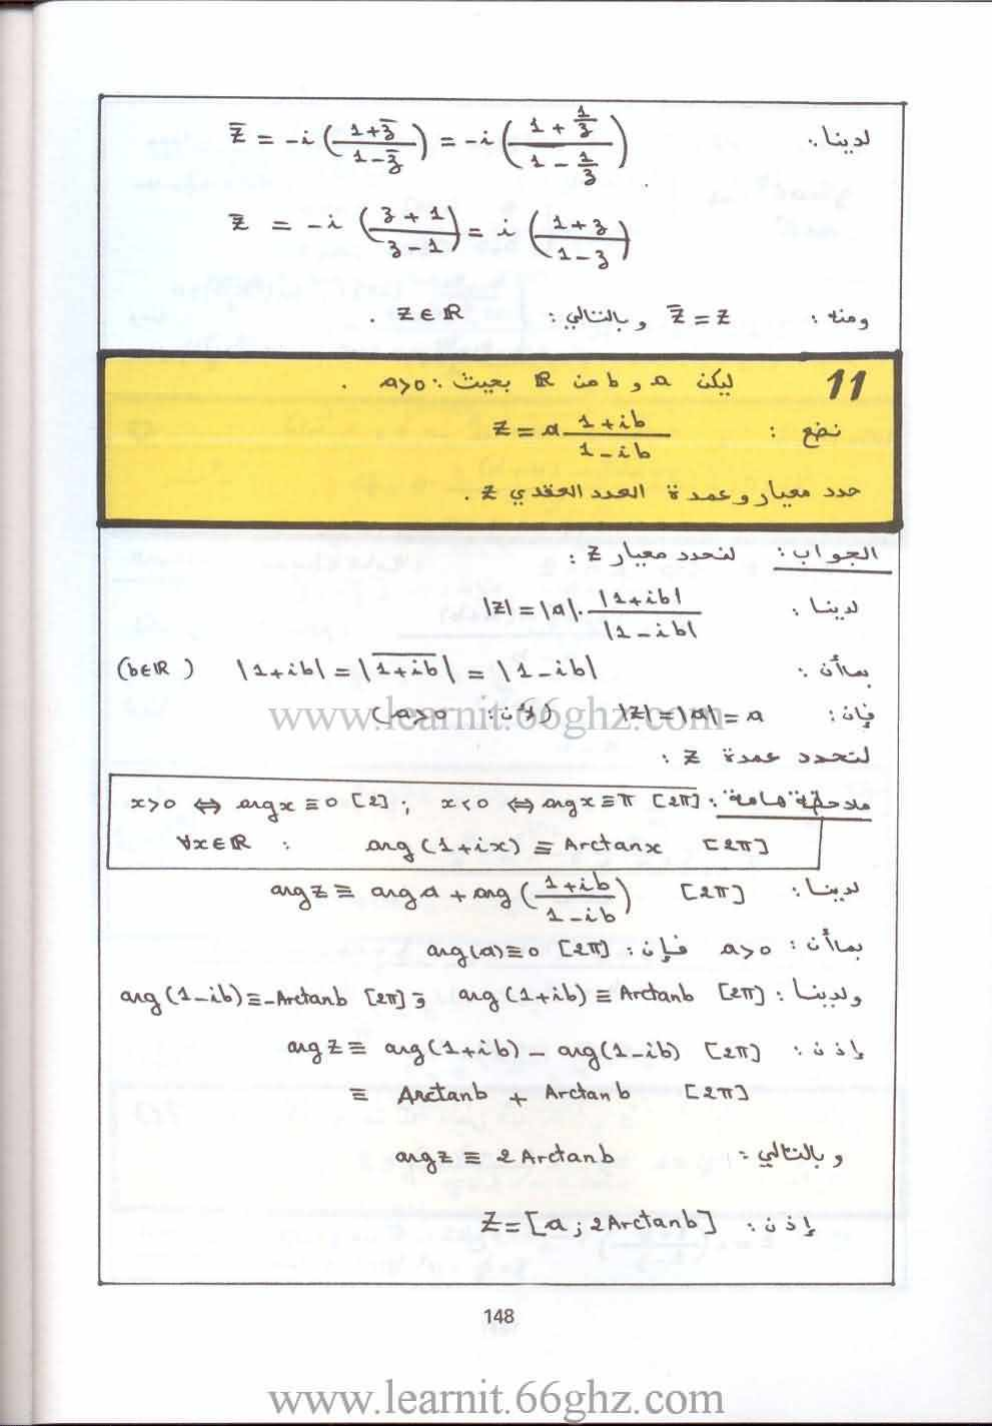 لدينا: z̄ = -i ((1+z̄)/(1-z̄)) = -i ((1 + 1/z)/(1 - 1/z))
z̄ = -i ((z+1)/(z-1)) = i ((1+z)/(1-z))
ومنه : z̄ = z وبالتالي : z∈ℝ .
11 ليكن a و b من ℝ بحيث : a>0 .
نضع : z = a (1+ib)/(1-ib)
حدد معيار وعمدة العدد العقدي z .
الجواب : لنحدد معيار z :
لدينا : |z| = |a|. |1+ib|/|1-ib|
بما أن : |1+ib| = |\overline{1+ib}| = |1-ib| (b∈ℝ)
فإن : |z| = |a| = a (لأن : a>0)
www.learnit.66ghz.com
لنحدد عمدة z :
ملاحظة "هامة" : x>0 ⇔ arg x ≡ 0 [2] ; x<0 ⇔ arg x ≡ π [2π]
∀x∈ℝ : arg(1+ix) ≡ Arctan x [2π]
لدينا : arg z ≡ arg a + arg((1+ib)/(1-ib)) [2π]
بما أن : a>0 فإن : arg(a) ≡ 0 [2π]
ولدينا : arg(1+ib) ≡ Arctan b [2π] و arg(1-ib) ≡ -Arctan b [2π]
إذن : arg z ≡ arg(1+ib) - arg(1-ib) [2π]
≡ Arctan b + Arctan b [2π]
وبالتالي : arg z ≡ 2 Arctan b
إذن : z = [a ; 2 Arctan b]
148
www.learnit.66ghz.com